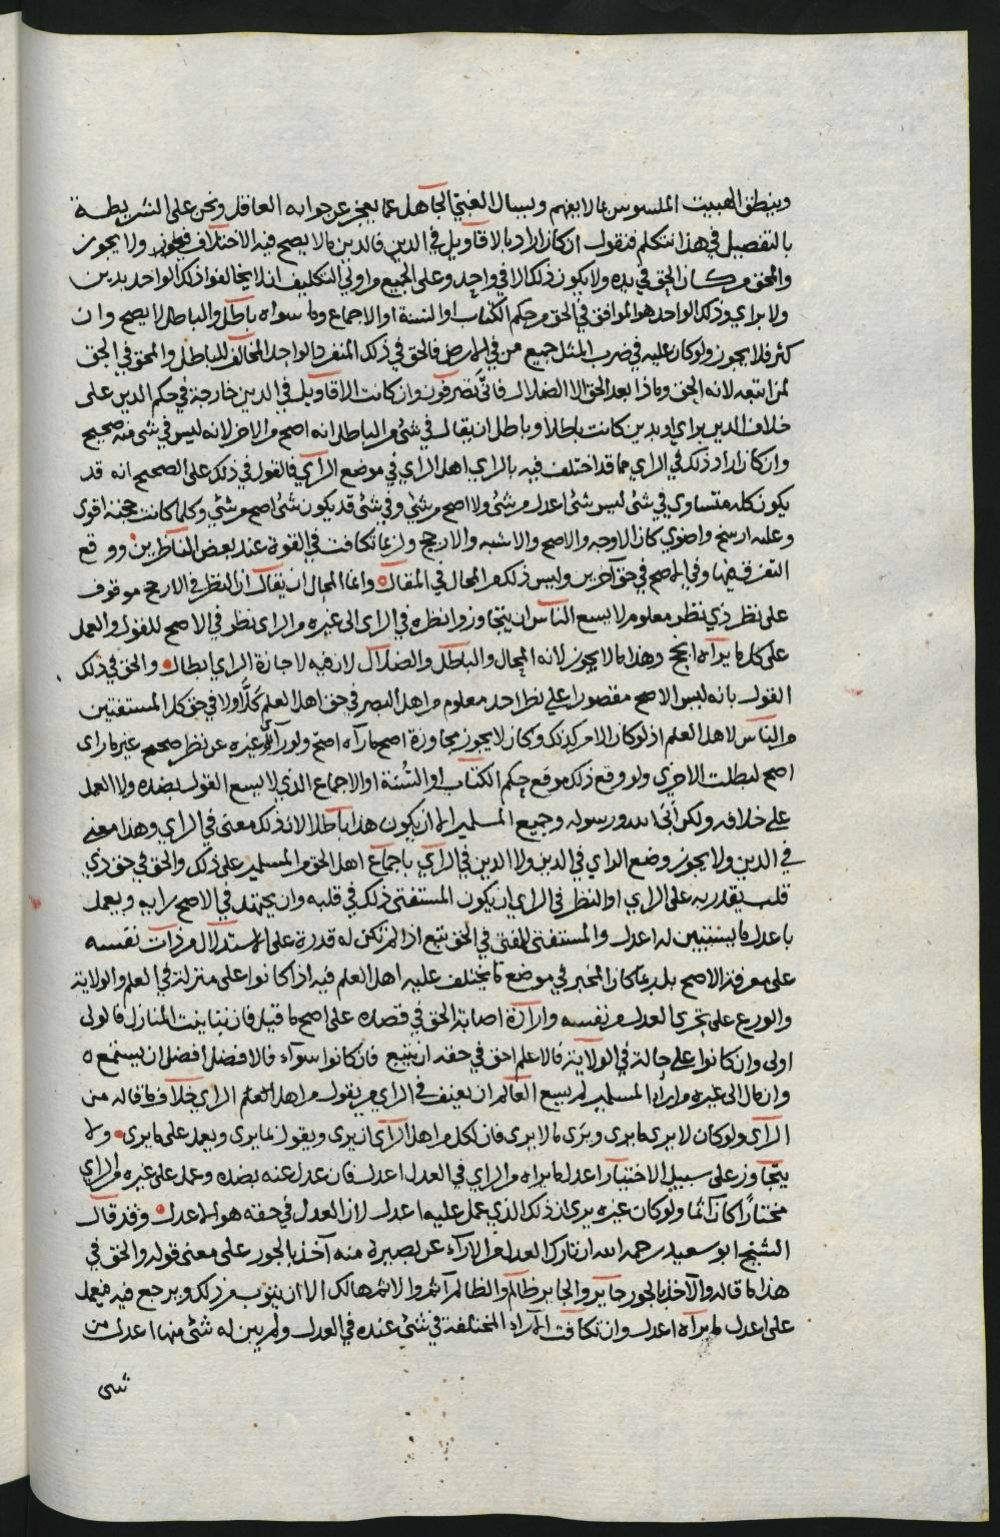 وينطق العييت الملسوس بما لا يفهم ويسال الغبي الجاهل عما يعجز عن جوابه العاقل ونحن على الشريطة
بالتفصيل في هذا نتكلم فنقول ان كان اراد بالاقاويل في الدين فالدين مما لا يصح فيه الاختلاف فيجوز ولا يجوز
والمحق من كان الحق في يده ولا يكون ذلك الا في واحد وعلى الجميع من اولي التكليف ان لا يخالفوا ذلك الواحد بدين
ولا براي وذلك الواحد هو الموافق في الحق من حكم الكتاب او السنة او الاجماع وما سواه باطل والباطل لا يصح وان
كثر فلا يجوز ولو كان عليه في ضرب المثل جميع من في الارض فالحق في ذلك المنفرد الواحد المخالف للباطل والمحق في الحق
لمن اتبعه لانه الحق وماذا بعد الحق الا الضلال فانى تصرفون وان كانت الاقاويل في الدين خارجة في حكم الدين على
خلاف الدين براي او بدين كانت باطلا وباطل ان يقال في شئ من الباطل انه اصح من الاخر لانه ليس في شئ منه صحيح
وان كان اراد ذلك في الراي مما قد اختلف فيه بالراي اهل الراي في موضع الراي فالقول في ذلك على الصحيح انه قد
يكون كله متساوي في شئ ليس شئ اعدل من شئ ولا اصح من شئ وفي شئ قد يكون شئ اصح من شئ وكلما كانت حجته اقوى
وعلمه ارسخ واضوي كان الاوجه والاصح والاشبه والارجح وربما تكافت في القوة عند بعض الناظرين ووقع
التفرق فيها وفي الاصح في حق آخرين وليس ذلك من المحال في المقال وانما المحال ان يقال ان النظر في الارجح موقوف
على نظر ذي نظر معلوم لا يسع الناس ان يتجاوزوا نظره في الراي الى غيره من الراي نظر في الاصح للقول والعمل
على كل ما يراه ارجح وهذا ما لا يجوز لانه المحال والباطل والضلال لان فيه لاجازة الراي ابطال والحق في ذلك
القول بانه ليس الاصح مقصورا على نظر احد معلوم من اهل البصر في حق اهل العلم كلا ولا في حق كل المستفتين
من الناس لاهل العلم اذ لو كان الامر كذلك وكان لا يجوز مجاوزة اصح ما رآه اصح ولو راى غيره عن نظر صحيح غير ما راى
اصح لبطلت الاخرى ولو وقع ذلك موقع حكم الكتاب او السنة او الاجماع الذي لا يسع القول بضده ولا العمل
على خلافه ولكن ابى الله ورسوله وجميع المسلمين الا ان يكون هذا باطلا لان ذلك معنى في الراي وهذا معنى
في الدين ولا يجوز وضع الراي في الدين ولا الدين في الراي باجماع اهل الحق من المسلمين على ذلك والحق في حق ذي
قلب يقدر به على الراي او النظر في الراي ان يكون المستفتى ذلك في قلبه وان يجتهد في الاصح رايه ويعمل
باعدل ما يستبين له اعدل والمستفتي للمفتي في الحق تبع اذا لم تكن له قدرة على الاستدلال من ذات نفسه
على معرفة الاصح بل ربما كان المخير في موضع ما يختلف عليه اهل العلم فيه اذا كانوا على منزلة في العلم والولاية
والورع على تحري العدل من نفسه وارادة اصابة الحق في قصده على اصح ما قيل فان تباينت المنازل فالاولى
اولى وان كانوا على حالة في الولاية فالاعلم احق في حقه ان يتبع فان كانوا سوآء فالافضل افضل ان يستمع ه
وان مال الى غيره من اراء المسلمين لم يسع العالم ان يعنف في الراي من يقول من اهل العلم الراي خلاف ما قاله من
الراى ولو كان لا يرى ما يرى ويرى ما لا يرى فان لكل من اهل الراى ان يرى ويقول بما يرى ويعمل على ما يرى ولا
يتجاوز على سبيل الاختيار اعدل ما يراه من الراي في العدل اعدل فان عدل عنه بضده وعمل على غيره من الراي
مختارا كان آثما ولو كان غيره يرى ان ذلك الذي عمل عليه اعدل لان العدل في حقه هو الاعدل وقد قال
الشيخ ابو سعيد رحمه الله ان تارك العدل من الارآء عن بصيرة منه آخذ بالجور على معنى قوله والحق في
هذا ما قاله والآخذ بالجور جاير والجاير ظالم والظالم آثم والاثم هالك الا ان يتوب من ذلك ويرجع فيه فيعمل
على اعدل ما يرآه اعدل وان تكافت الاراء المختلفة في شئ عنده في العدل ولم يبن له شئ منها اعدل من
شى